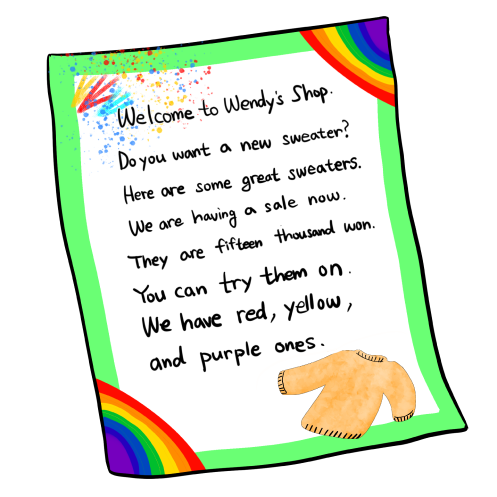 Welcome to Wendy's Shop.
Do you want a new sweater?
Here are some great sweaters.
We are having a sale now.
They are fifteen thousand won.
You can try them on.
We have red, yellow,
and purple ones.